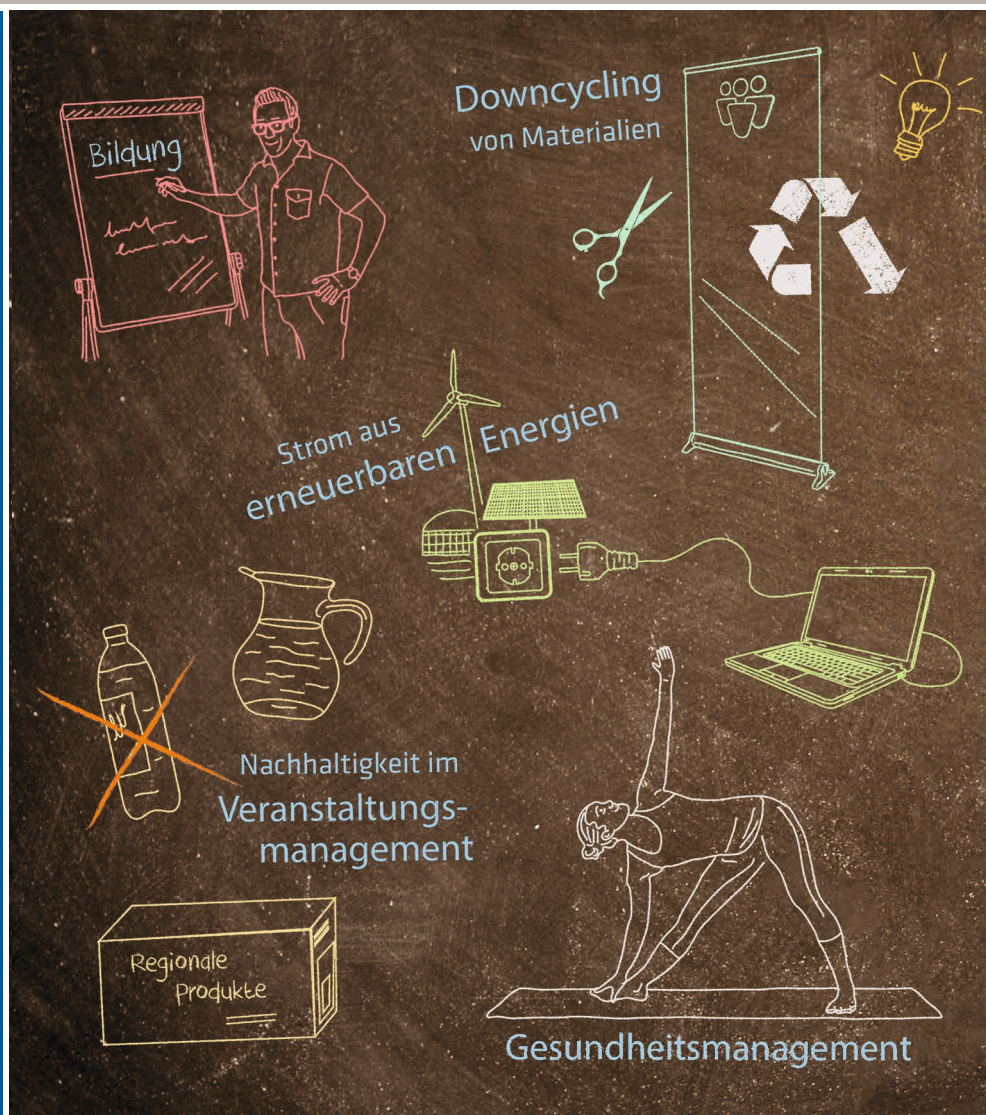 Bildung
Downcycling
von Materialien
Strom aus
erneuerbaren Energien
Nachhaltigkeit im
Veranstaltungs-
management
Regionale
Produkte
Gesundheitsmanagement